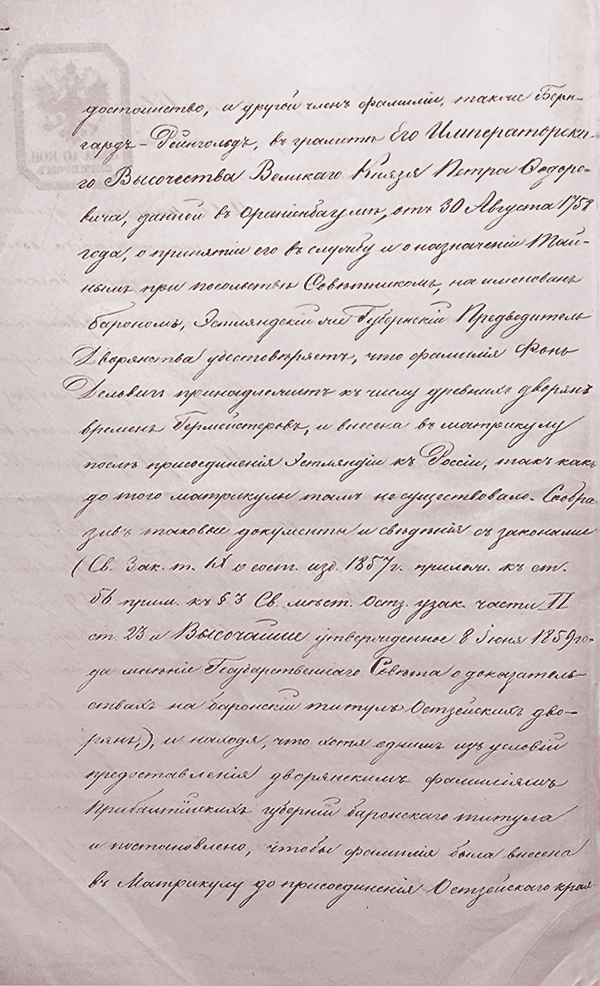 достоинство, а другой членъ фамиліи, также Берн-
гардъ-Рейнгольдъ, въ грамотѣ Его Императорска-
го Высочества Великаго Князя Петра Ѳедоро-
вича, данной въ Ораніенбаумѣ, отъ 30 Августа 1758
года, о принятіи его въ службу и о назначеніи Тай-
нымъ при посольствѣ Совѣтникомъ, наименованъ
барономъ, Эстляндскій же Губернскій Предводитель
Дворянства удостовѣряетъ, что фамилія Фонъ
Дельвигъ принадлежитъ къ числу древнихъ дворянъ
временъ Гермейстеровъ, и внесена въ матрикулу
послѣ присоединенія Эстляндіи къ Россіи, такъ какъ
до того матрикулы тамъ не существовало. Сообра
зивъ таковые документы и свѣдѣнія съ законами
(Св. Зак. т. IX о сост. изд. 1857 г. прилож. къ ст.
66 прим. къ § 3 Св. мѣст. Остз. узак. части II
ст. 23 и Высочайше утвержденное 8 Іюня 1859 го-
да мнѣніе Государственнаго Совѣта о доказатель-
ствахъ на баронскій титулъ Остзейскихъ дво-
рянъ), и находя, что хотя однимъ изъ условій
предоставленія дворянскимъ фамиліямъ
Прибалтійскихъ губерній баронскаго титула
и постановлено, чтобы фамилія была внесена
въ Матрикулу до присоединенія Остзейскаго края